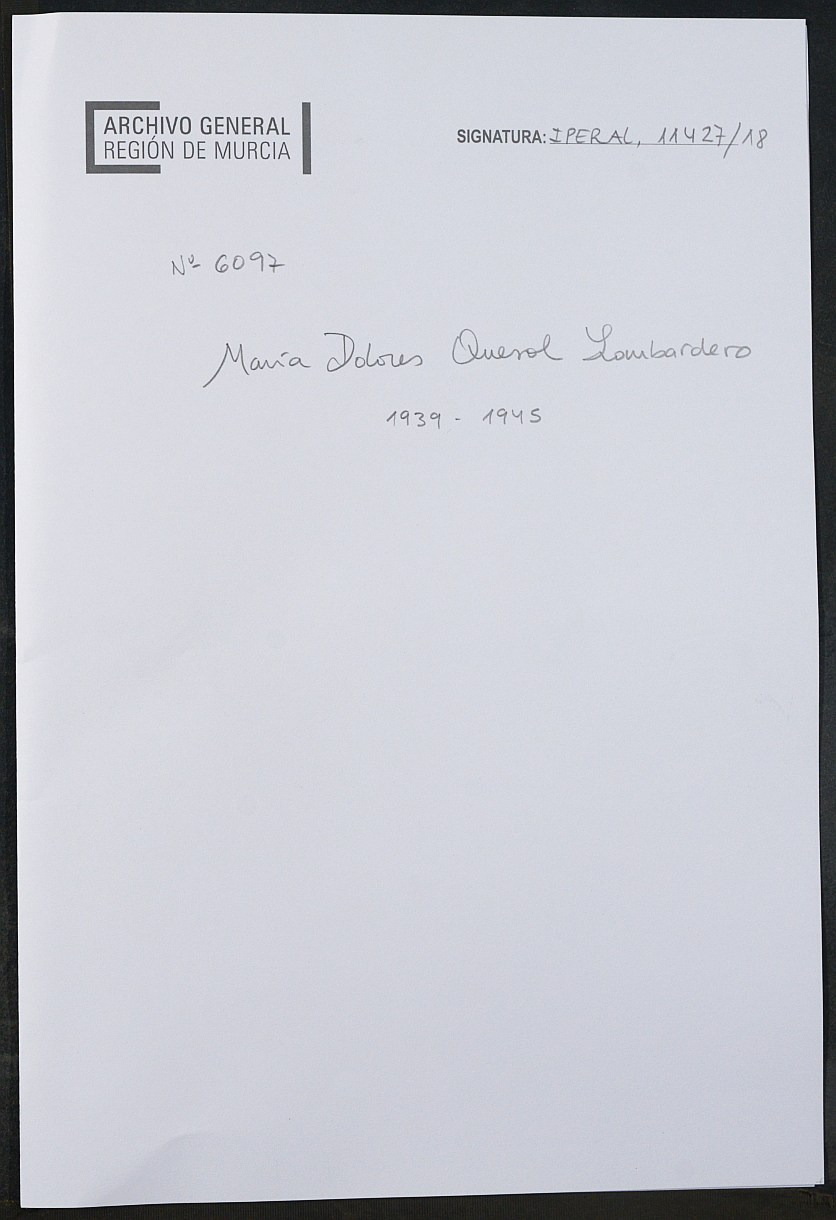 ARCHIVO GENERAL
REGIÓN DE MURCIA
SIGNATURA: IPERAL, 11427/18
Nº 6097
María Dolores Querol Lombardero
1939 - 1945